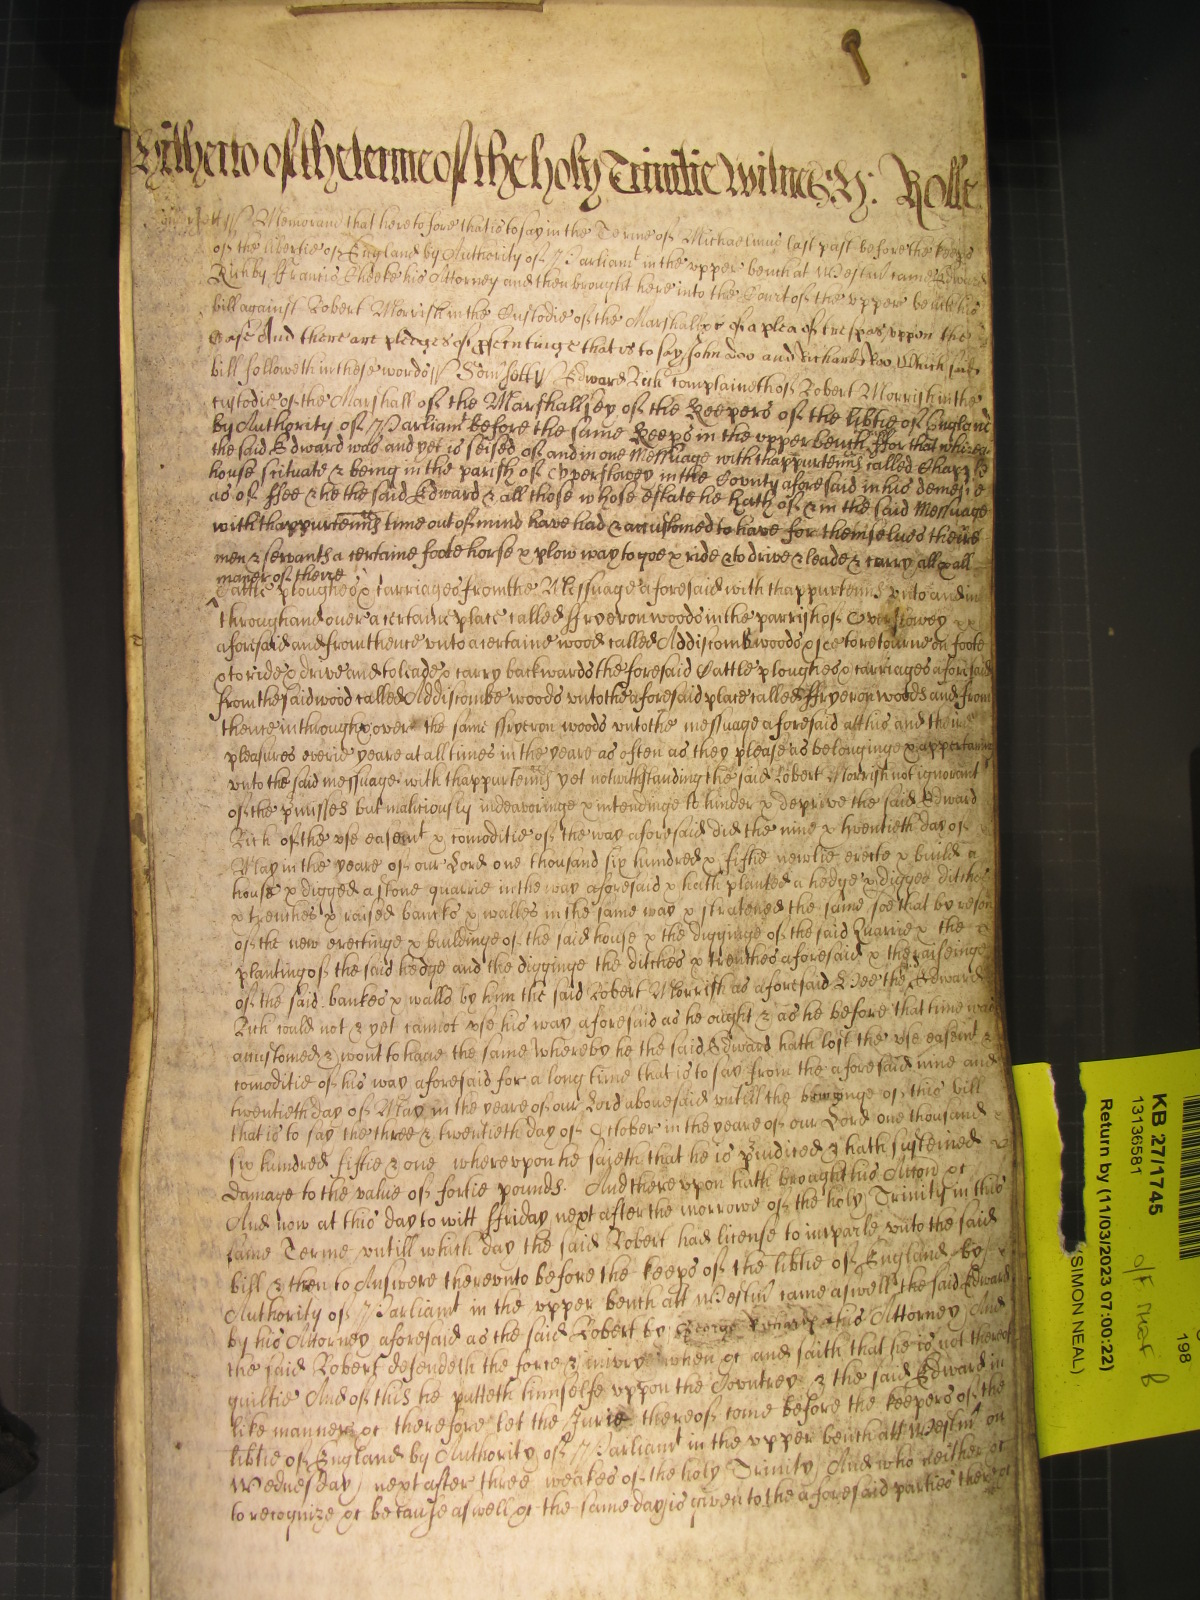 Hitherto of the terme of the holy Trinitie Witnes: H: Rolle
Memorand that heretofore that is to say in the Terme of Michaelmas last past before the keeps
of the libertie of England by Authority of Parliamt in the vpper bench at Westm came Edward
Rich by Francis Cheeke his Attorney and then brought here into the Court of the vpper bench his
bill against Robert Morrish in the Custodie of the Marshall &c of a plea of trespas vppon the
Case And there are pledges of psecutinge that is to say John Doo and Richard Roo Which said
bill followeth in these words // Somsett // Edward Rich complaineth of Robert Morrish in the
custodie of the Marshall of the Marshallsey of the Keepers of the libtie of England
by Authority of Parliamt before the same Keeps in the vpper bench ffor that wheras
the said Edward was and yet is seised of and in one Messuage with thappurtenncs called
house scituate & being in the parish of Overstowey in the County aforesaid in his demesne
as of ffee & he the said Edward & all those whose estate he hath of & in the said Messuage
with thappurtenncs time out of mind have had & accustomed to have for themselves theire
men & servants a certaine foote horse & plow way to goe & ride & to drive & leade & carry all & all
maner of theire
Cattle ploughes & carriages from the Messuage aforesaid with thappurtenncs vnto and in
through and over a certaine place called ffryeron woods in the parrish of Overstowey
aforesaid and from thence vnto a certaine wood called Addiscombe woods & soe to retourne on foote
& to ride & drive and to leade & carry backwards the foresaid Cattle ploughes & carriages aforesaid
from the said wood called Addiscombe woods vnto the aforesaid place called ffryeron woods and from
thence in through & over the same ffryeron woods vnto the messuage aforesaid att his and theire
pleasures everie yeare at all times in the yeare as often as they please as belonginge & appertaininge
vnto the said messuage with thappurtenncs yet notwithstanding the said Robert Morrish not ignorant
of the pmisses but maliciously indeavoringe & intendinge to hinder & deprive the said Edward
Rich of the vse easemt & comoditie of the way aforesaid did the nine & twentieth day of
May in the yeare of our Lord one thousand six hundred & fiftie newlie erecte & build a
house & digged a stone quarrie in the way aforesaid & hath planted a hedge & digged ditches
& trenches & raised bancks & walles in the same way & straitened the same soe that by reson
of the new erectinge & buildinge of the said house & the digginge of the said Quarrie & the
planting of the said hedge and the digginge the ditches & trenches aforesaid & the raiseinge
of the said bankes & walls by him the said Robert Morrish as aforesaid Hee the Edward
Rich could not & yet cannot vse his way aforesaid as he ought & as he before that time was
accustomed & wont to haue the same whereby he the said Edward hath lost the vse easemt &
comoditie of his way aforesaid for a long time that is to say from the aforesaid nine and
twentieth day of May in the yeare of our Lord abouesaid vntill the bringinge of this bill
that is to say the three & twentieth day of October in the yeare of our Lord one thousand
six hundred fiftie & one wherevpon he sayeth that he is piudiced & hath susteined
damage to the value of fortie pounds. And therevpon hath brought his Action &c
And now at this day to witt ffriday next after the morrowe of the holy Trinity in this
same Terme vntill which day the said Robert had license to imparle vnto the said
bill & then to Answere therevnto before the keeps of the libtie of England by
Authority of Parliamt in the vpper bench att Westm came aswell the said Edward
by his Attorney aforesaid as the said Robert by George his Attorney And
the said Robert defendeth the force & iniury when &c and saith that he is not thereof
guiltie And of this he putteth himselfe vppon the Countrey & the said Edward in
like manner &c therefore let the Jurie thereof come before the keepers of the
libtie of England by Authority of Parliamt in the vpper bench att Westm on
Wednesday next after three weakes of the holy Trinity And who neither &c
to recognize &c because aswell &c the same day is given to the aforesaid parties there &c
KB 27/1745
13136581
Return by (11/03/2023 07:00:22)
(SIMON NEAL)
198